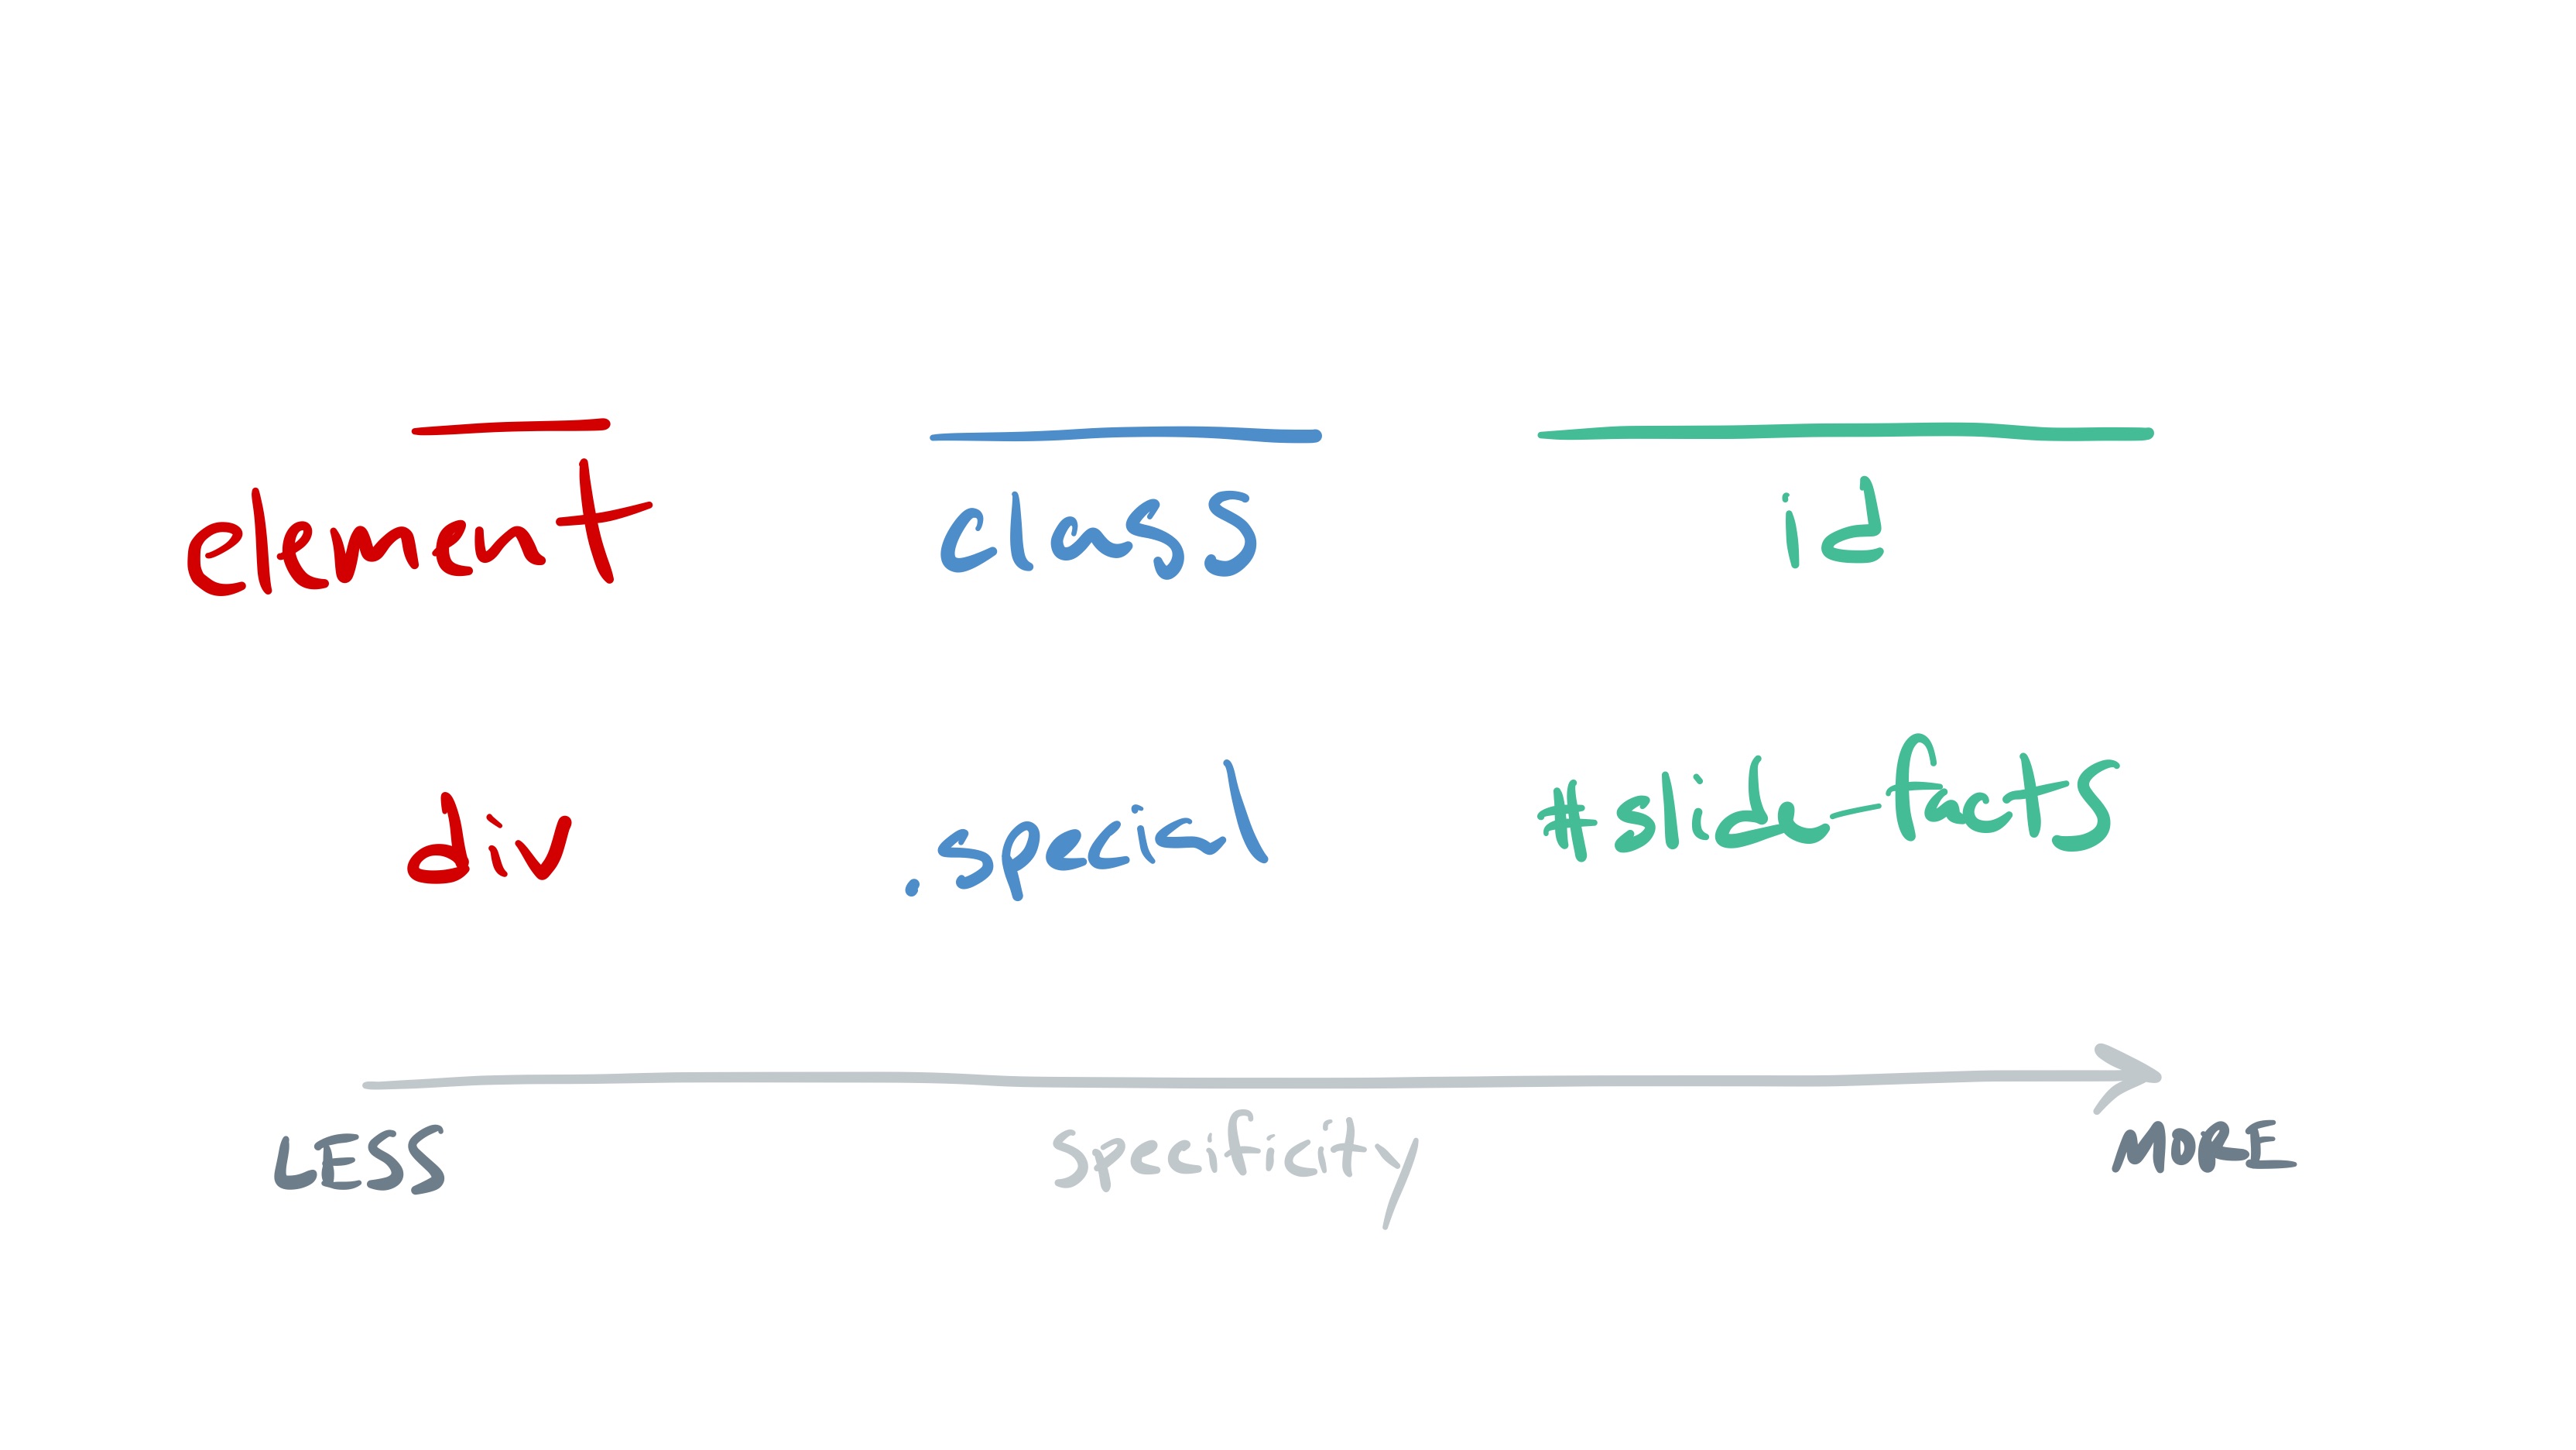 element class id
div .special #slide-facts
Specificity
LESS MORE